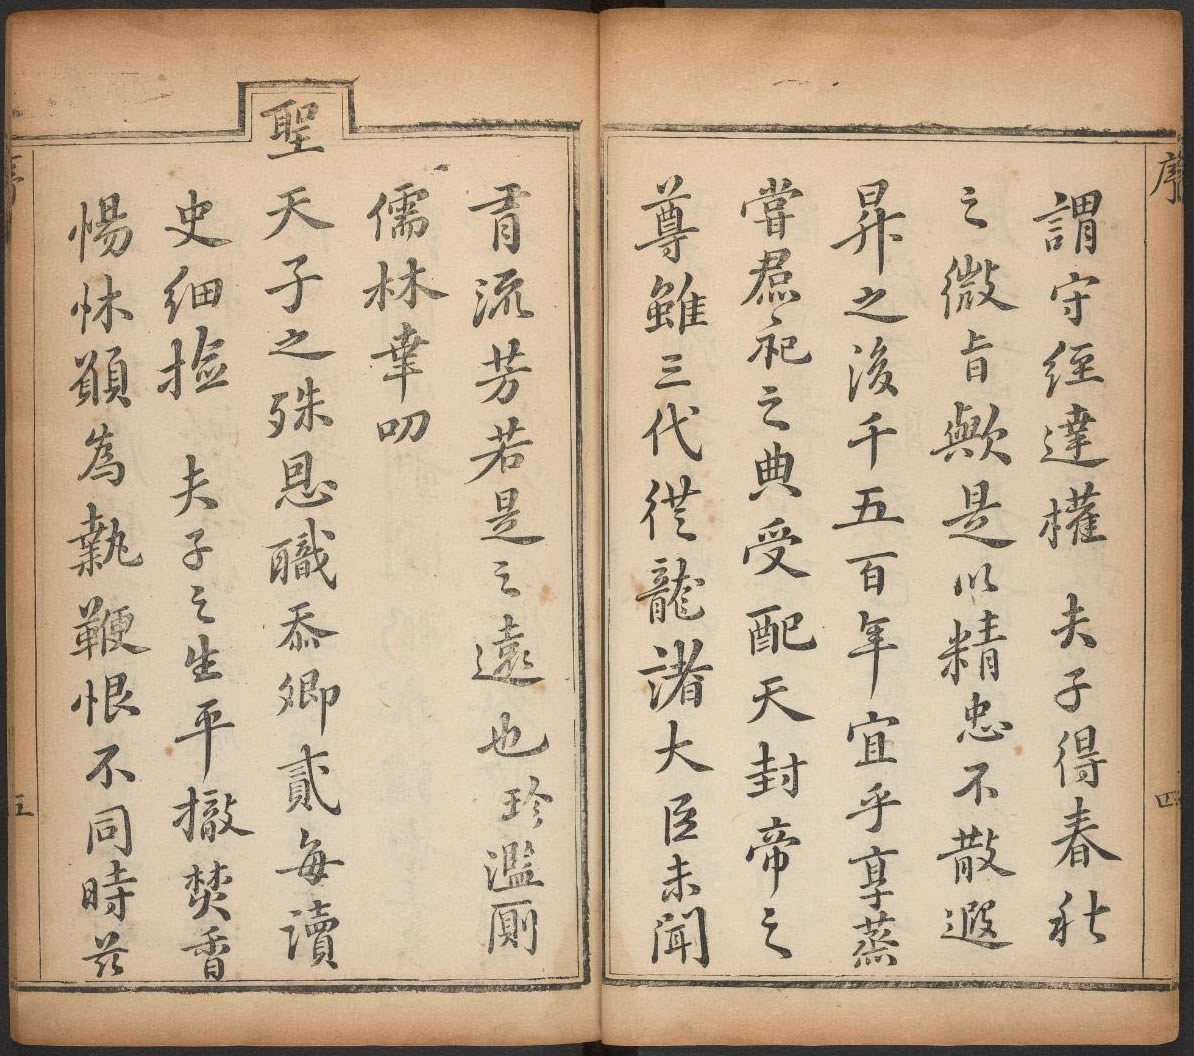 序
四
謂守經達權　夫子得春秋
之微旨歟是以精忠不散遐
昇之後千五百年宜乎享蒸
嘗焄祀之典受配天封帝之
尊雖三代從龍諸大臣未聞
有流芳若是之遠也珍濫厠
儒林幸叨
聖天子之殊恩職忝卿貳每讀
史細撿　夫子之生平撤焚香
惕怵願為執鞭恨不同時茲
序
五